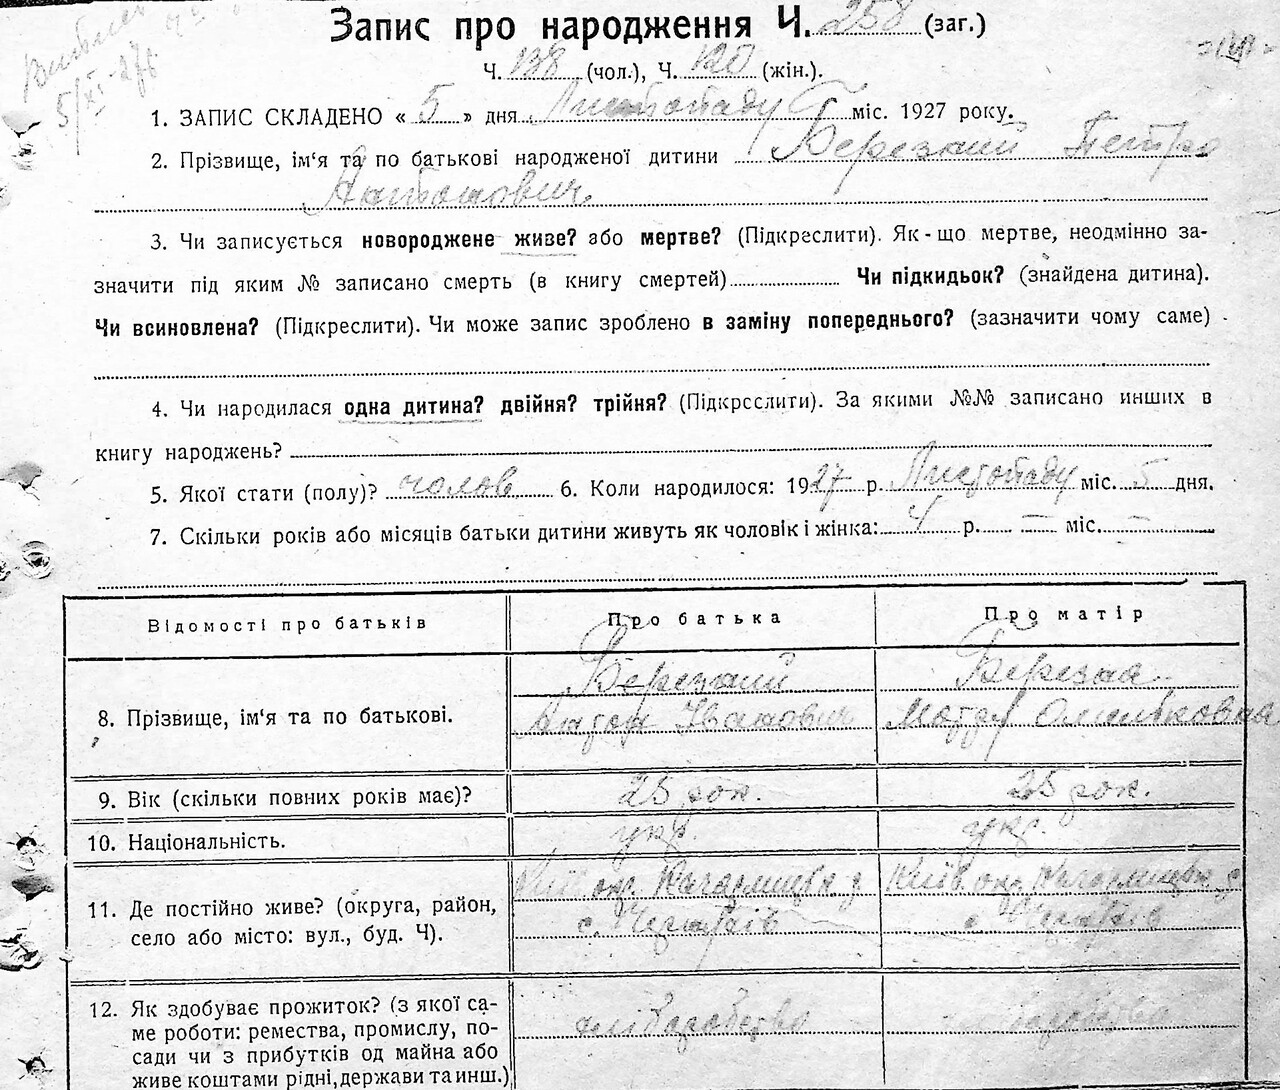 Запис про народження Ч. 258 (заг.)
Ч. 138 (чол.), Ч. 120 (жін.).
5/XI-27р
1. ЗАПИС СКЛАДЕНО « 5 » дня Листопаду міс. 1927 року.
2. Прізвище, ім'я та по батькові народженої дитини Березний Петро
Антонович
3. Чи записується новороджене живе? або мертве? (Підкреслити). Як-що мертве, неодмінно за-
значити під яким № записано смерть (в книгу смертей) Чи підкидьок? (знайдена дитина).
Чи всиновлена? (Підкреслити). Чи може запис зроблено в заміну попереднього? (зазначити чому саме)
4. Чи народилася одна дитина? двійня? трійня? (Підкреслити). За якими №№ записано инших в
книгу народжень?
5. Якої стати (полу)? чолов 6. Коли народилося: 1927 р. Листопаду міс. 5 дня.
7. Скільки років або місяців батьки дитини живуть як чоловік і жінка: 4 р. — міс. —
Відомості про батьків Про батька Про матір
8. Прізвище, ім'я та по батькові. Березний Березна
Антон Іванович Мотря Омельковна
9. Вік (скільки повних років має)? 25 рок. 25 рок.
10. Національність. укр. укр.
11. Де постійно живе? (округа, район, Київ. окр. Кагарлицьк. р Київ. окр. Кагарлицьк. р
село або місто: вул., буд. Ч). с. с.
12. Як здобуває прожиток? (з якої са-
ме роботи: ремества, промислу, по- хліборобство хліборобство
сади чи з прибутків од майна або
живе коштами рідні, держави та инш.)